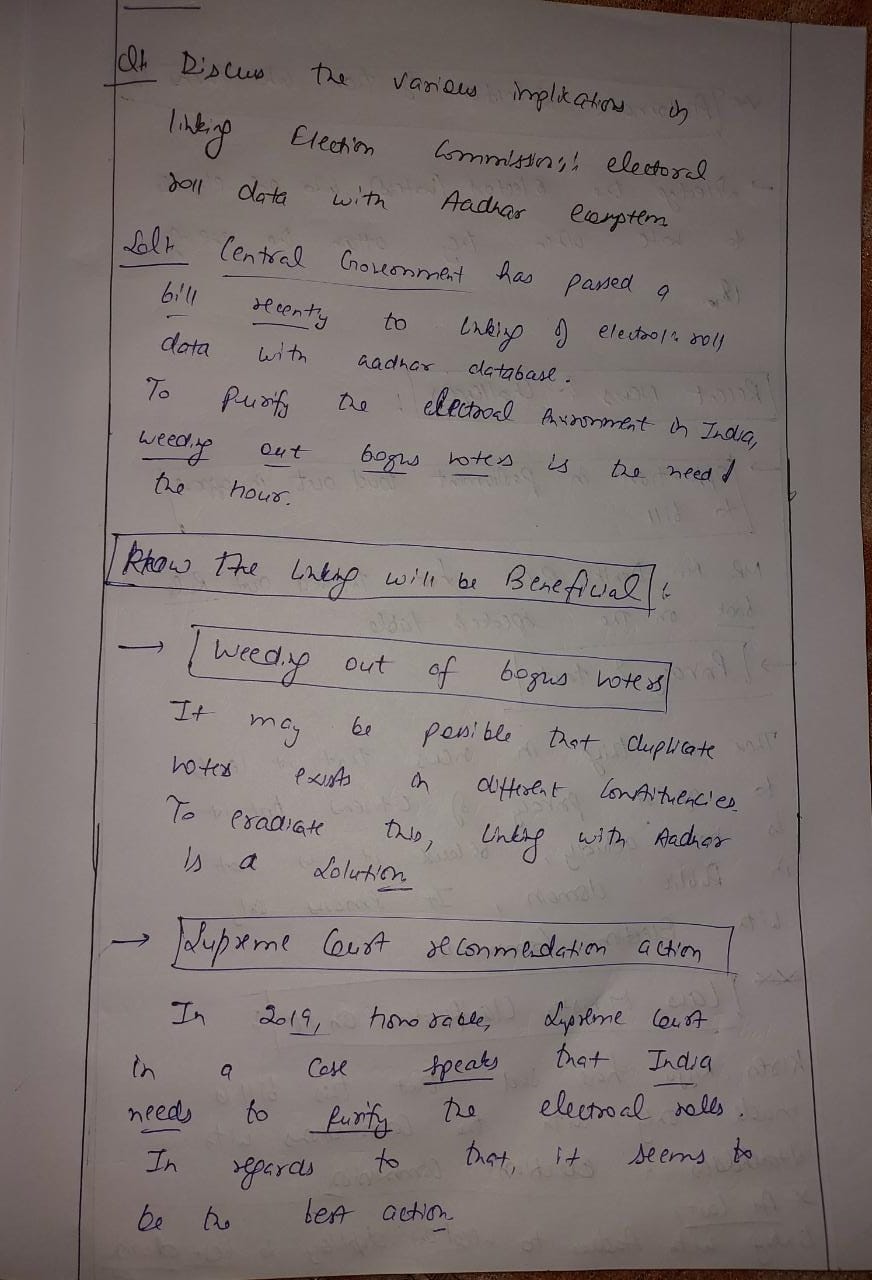 Q1 Discuss the various implications in
linking Election Commission's electoral
roll data with Aadhar
Sol: Central Government has passed a
bill recenty to linking of electrola roll
data with aadhar database.
To purify the electroal in India,
weeding out bogus voters is the need of
the hour.
How the linking will be Beneficial :
→ Weeding out of bogus voters
It may be possible that duplicate
voters exists in different constituencies.
To eradicate this, linking with Aadhar
is a solution
→ Supreme Court recommendation action
In 2019, honorable, Supreme Court
in a case speaks that India
needs to purify the electroal rolls.
In regards to that, it seems to
be the best action